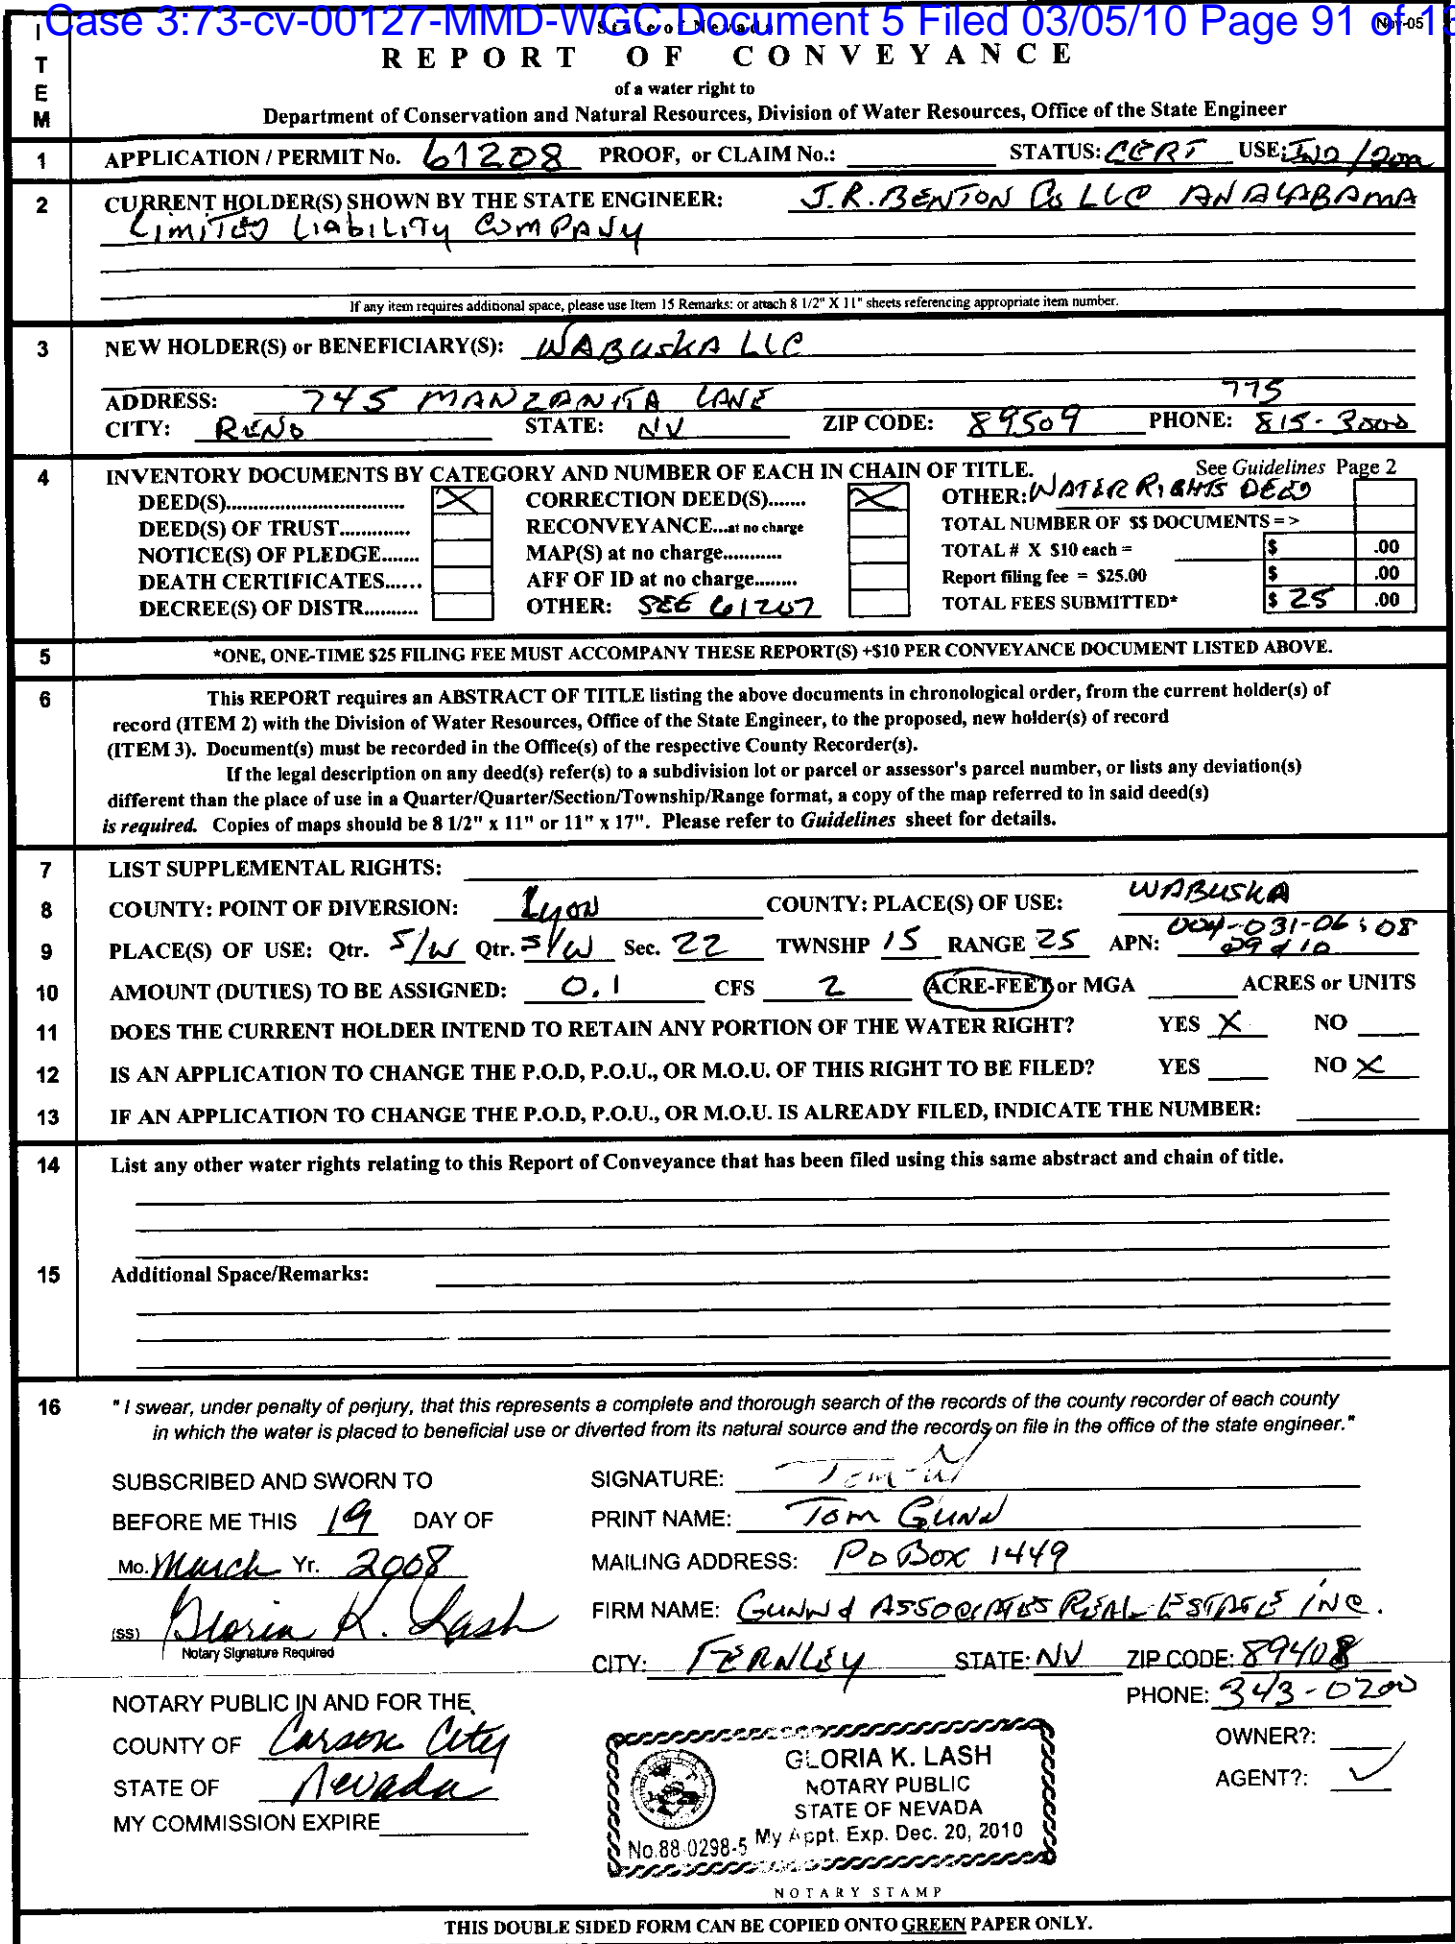 Case 3:73-cv-00127-MMD-WGC Document 5 Filed 03/05/10 Page 91 of
State of Nevada Nov-05
ITEM
REPORT OF CONVEYANCE
of a water right to
Department of Conservation and Natural Resources, Division of Water Resources, Office of the State Engineer
1 APPLICATION / PERMIT No. 61208 PROOF, or CLAIM No.: STATUS: CERT USE: IND /
2 CURRENT HOLDER(S) SHOWN BY THE STATE ENGINEER: J.R. BENTON Co LLC AN ALABAMA
LIMITED LIABILITY COMPANY
If any item requires additional space, please use Item 15 Remarks: or attach 8 1/2" X 11" sheets referencing appropriate item number.
3 NEW HOLDER(S) or BENEFICIARY(S): WABUSKA LLC
ADDRESS: 745 MANZANITA LANE 775
CITY: RENO STATE: NV ZIP CODE: 89509 PHONE: 815-3000
4 INVENTORY DOCUMENTS BY CATEGORY AND NUMBER OF EACH IN CHAIN OF TITLE. See Guidelines Page 2
DEED(S)................................ X CORRECTION DEED(S)....... X OTHER: WATER RIGHTS DEED
DEED(S) OF TRUST............. RECONVEYANCE...at no charge TOTAL NUMBER OF $$ DOCUMENTS = >
NOTICE(S) OF PLEDGE....... MAP(S) at no charge........... TOTAL # X $10 each = $ .00
DEATH CERTIFICATES...... AFF OF ID at no charge........ Report filing fee = $25.00 $ .00
DECREE(S) OF DISTR.......... OTHER: SEE 61207 TOTAL FEES SUBMITTED* $ 25 .00
5 *ONE, ONE-TIME $25 FILING FEE MUST ACCOMPANY THESE REPORT(S) +$10 PER CONVEYANCE DOCUMENT LISTED ABOVE.
6 This REPORT requires an ABSTRACT OF TITLE listing the above documents in chronological order, from the current holder(s) of
record (ITEM 2) with the Division of Water Resources, Office of the State Engineer, to the proposed, new holder(s) of record
(ITEM 3). Document(s) must be recorded in the Office(s) of the respective County Recorder(s).
If the legal description on any deed(s) refer(s) to a subdivision lot or parcel or assessor's parcel number, or lists any deviation(s)
different than the place of use in a Quarter/Quarter/Section/Township/Range format, a copy of the map referred to in said deed(s)
is required. Copies of maps should be 8 1/2" x 11" or 11" x 17". Please refer to Guidelines sheet for details.
7 LIST SUPPLEMENTAL RIGHTS:
8 COUNTY: POINT OF DIVERSION: Lyon COUNTY: PLACE(S) OF USE: WABUSKA
9 PLACE(S) OF USE: Qtr. S/W Qtr. S/W Sec. 22 TWNSHP 15 RANGE 25 APN: 004-031-06 : 08
09 & 10
10 AMOUNT (DUTIES) TO BE ASSIGNED: 0.1 CFS 2 ACRE-FEET or MGA ACRES or UNITS
11 DOES THE CURRENT HOLDER INTEND TO RETAIN ANY PORTION OF THE WATER RIGHT? YES X NO
12 IS AN APPLICATION TO CHANGE THE P.O.D, P.O.U., OR M.O.U. OF THIS RIGHT TO BE FILED? YES NO X
13 IF AN APPLICATION TO CHANGE THE P.O.D, P.O.U., OR M.O.U. IS ALREADY FILED, INDICATE THE NUMBER:
14 List any other water rights relating to this Report of Conveyance that has been filed using this same abstract and chain of title.
15 Additional Space/Remarks:
16 " I swear, under penalty of perjury, that this represents a complete and thorough search of the records of the county recorder of each county
in which the water is placed to beneficial use or diverted from its natural source and the records on file in the office of the state engineer."
SUBSCRIBED AND SWORN TO SIGNATURE:
BEFORE ME THIS 19 DAY OF PRINT NAME: Tom Gunn
Mo. March Yr. 2008 MAILING ADDRESS: PO Box 1449
(SS) Gloria K. Lash FIRM NAME: GUNN & ASSOCIATES REAL ESTATE INC.
Notary Signature Required
CITY: FERNLEY STATE: NV ZIP CODE: 89408
NOTARY PUBLIC IN AND FOR THE PHONE: 343-0200
COUNTY OF Carson City OWNER?:
STATE OF Nevada AGENT?: ✓
MY COMMISSION EXPIRE
GLORIA K. LASH
NOTARY PUBLIC
STATE OF NEVADA
No.88-0298-5 My Appt. Exp. Dec. 20, 2010
NOTARY STAMP
THIS DOUBLE SIDED FORM CAN BE COPIED ONTO GREEN PAPER ONLY.